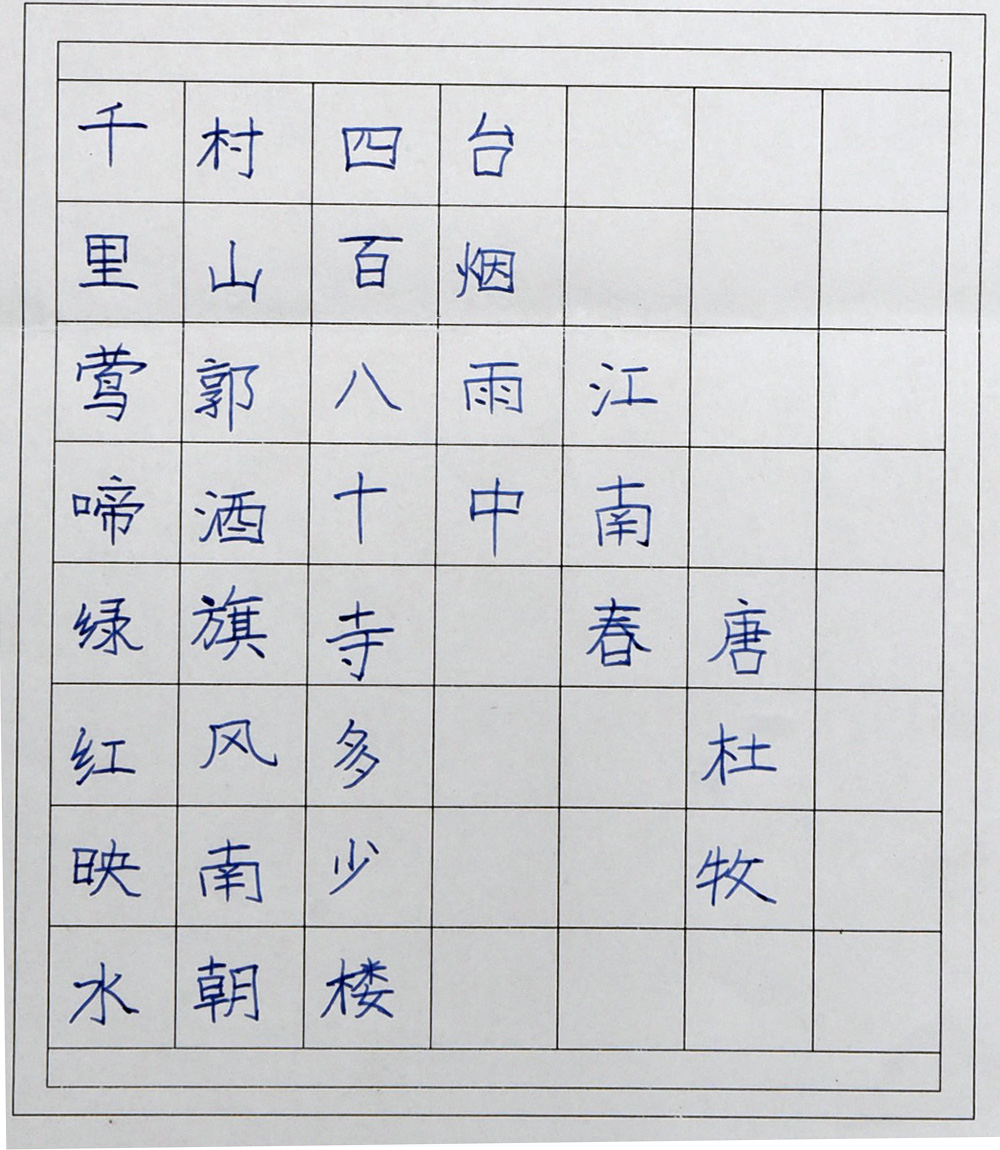 千里莺啼绿红映水
村山郭酒旗风南朝
四百八十寺多少楼
台烟雨中
江南春
唐杜牧